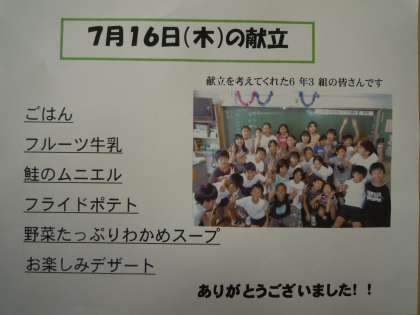 7月16日(木)の献立
献立を考えてくれた6 年3 組の皆さんです
ごはん
フルーツ牛乳
鮭のムニエル
フライドポテト
野菜たっぷりわかめスープ
お楽しみデザート
ありがとうございました！！